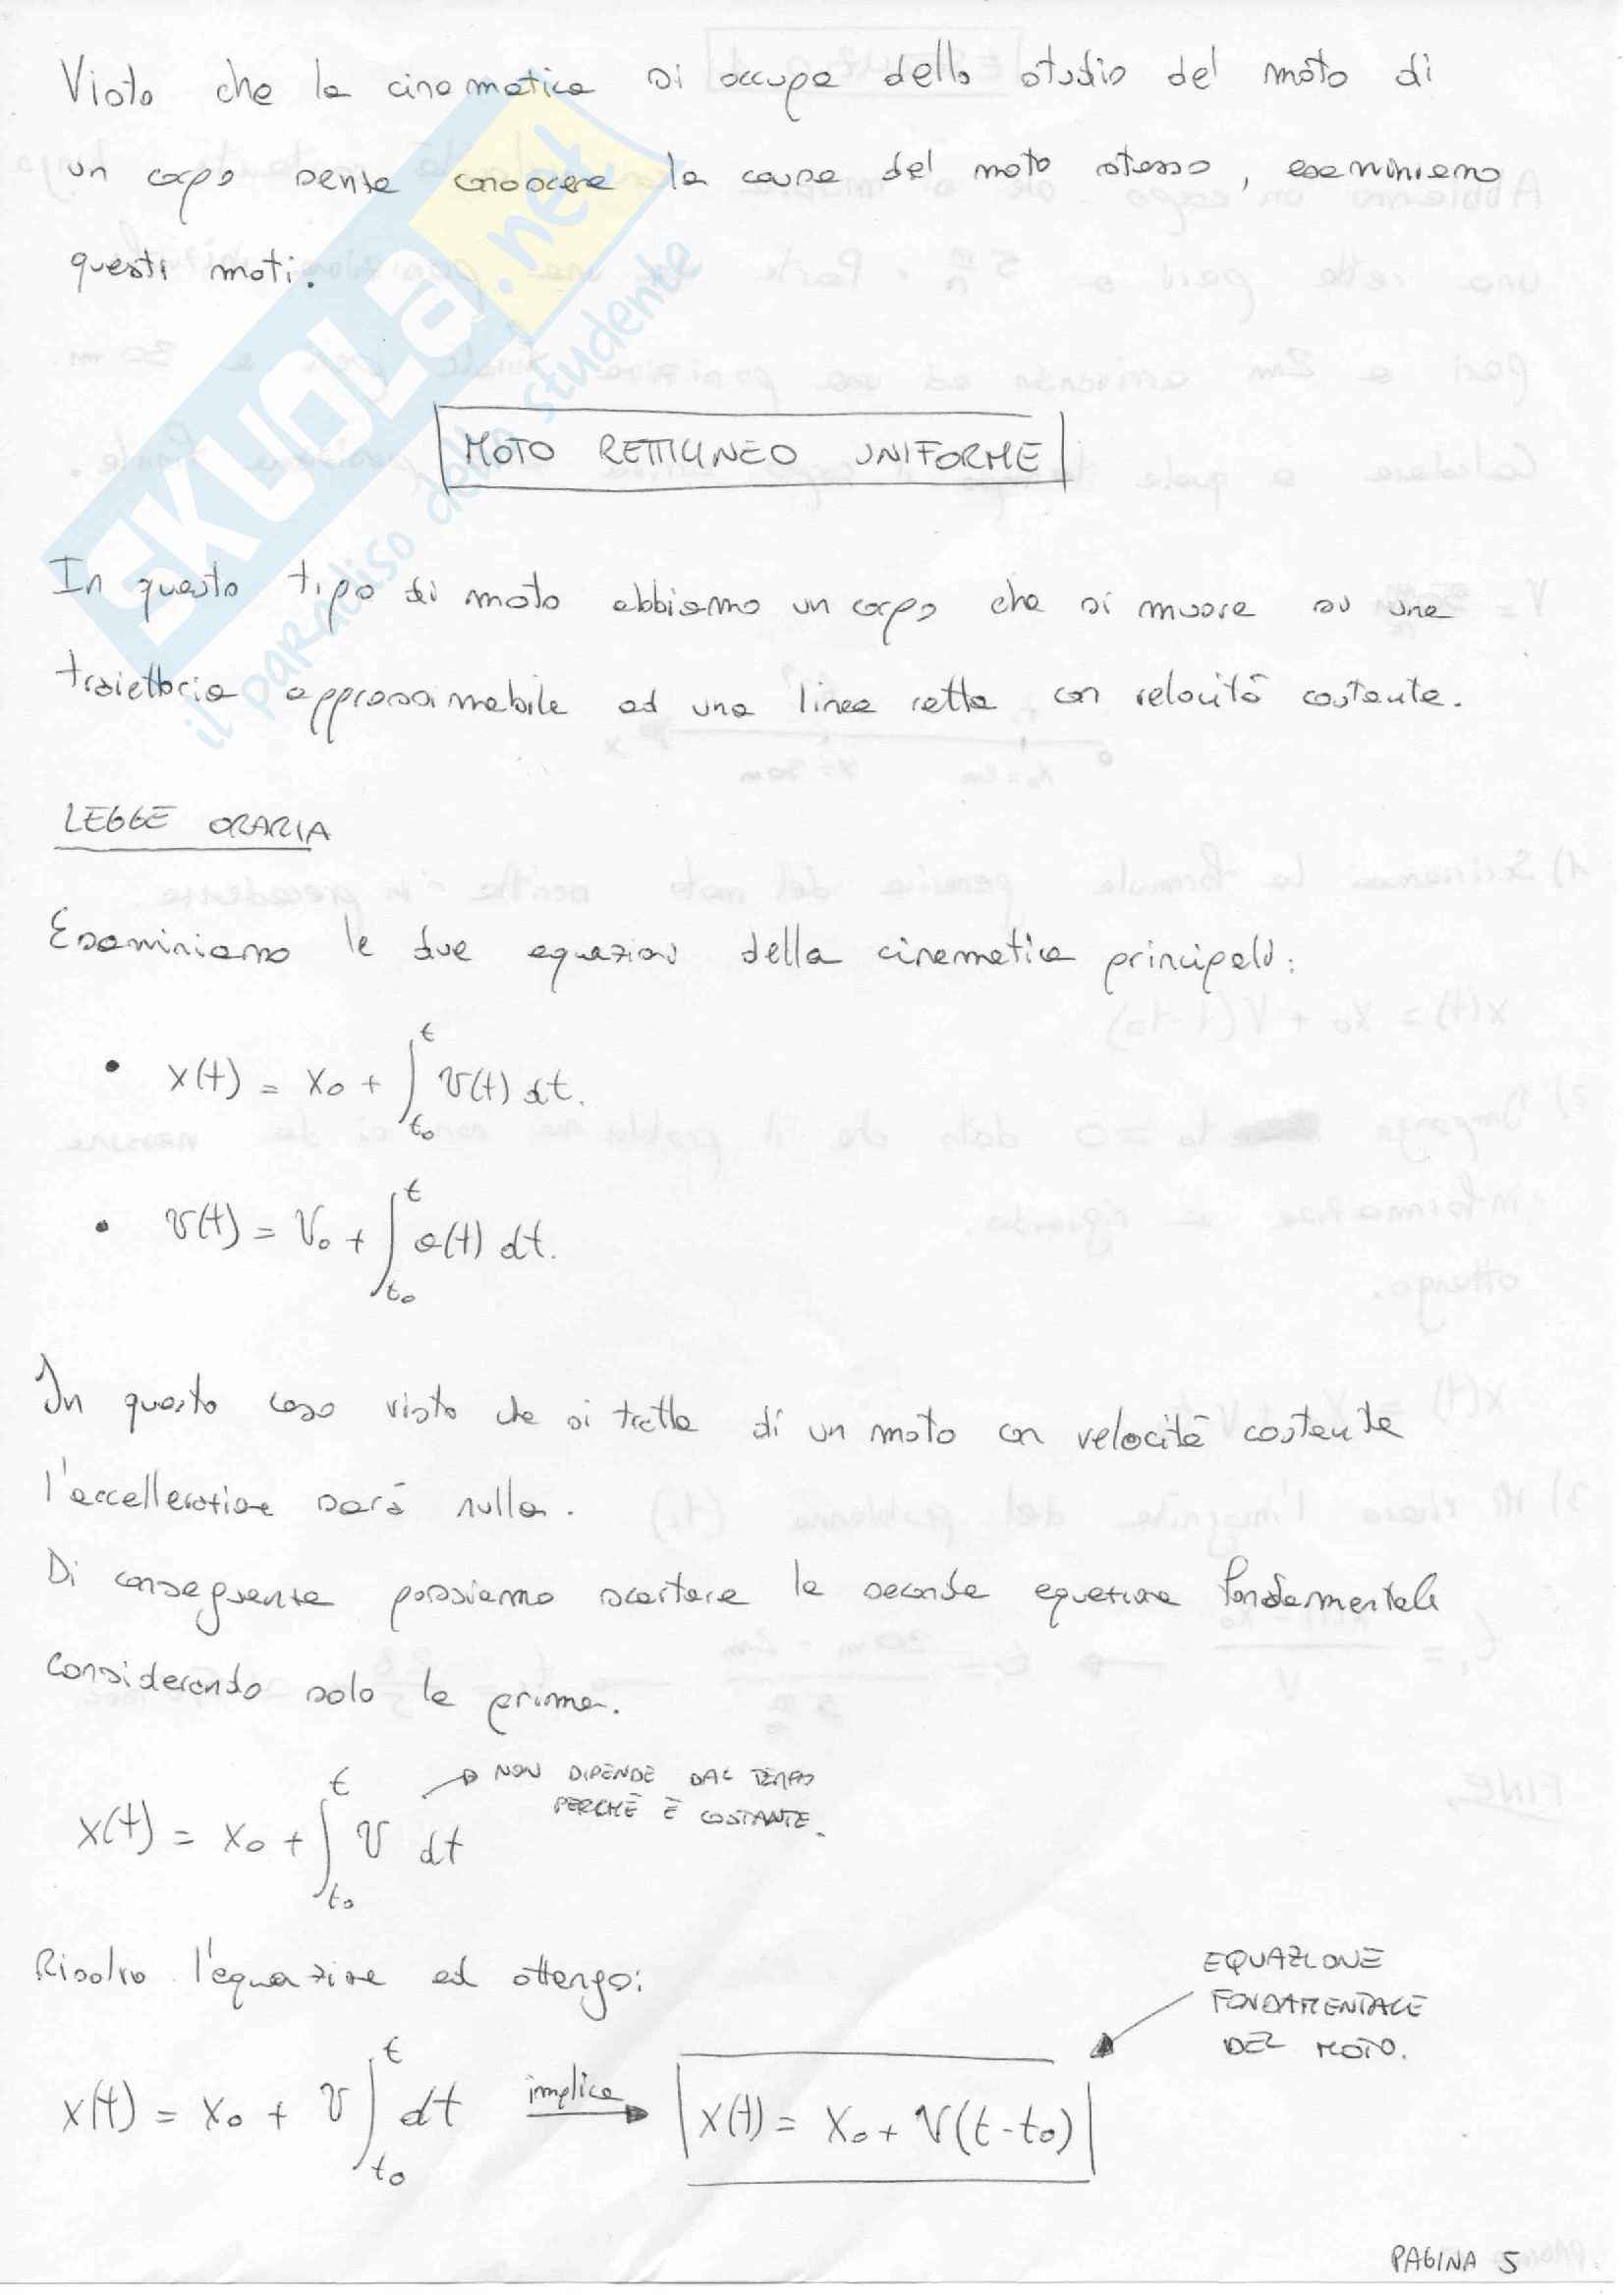 Visto che la cinematica si occupa dello studio del moto di
un corpo senza conoscere la causa del moto stesso, esaminiamo
questi moti.
MOTO RETTILINEO UNIFORME
In questo tipo di moto abbiamo un corpo che si muove su una
traiettoria approssimabile ad una linea retta con velocità costante.
LEGGE ORARIA
Esaminiamo le due equazioni della cinematica principali:
• x(t) = x₀ + ∫_{t₀}^{t} v(t) dt.
• v(t) = v₀ + ∫_{t₀}^{t} a(t) dt.
In questo caso visto che si tratta di un moto con velocità costante
l'accellerazione sarà nulla.
Di conseguenza possiamo scartare la seconda equazione fondamentale
considerando solo la prima.
x(t) = x₀ + ∫_{t₀}^{t} v dt → NON DIPENDE DAL TEMPO
PERCHÈ È COSTANTE.
Risolvo l'equazione ed ottengo:
EQUAZIONE
FONDAMENTALE
DEL MOTO.
x(t) = x₀ + v ∫_{t₀}^{t} dt implica → x(t) = x₀ + v(t-t₀)
PAGINA 5
SKUOLA.net
il paradiso dello studente